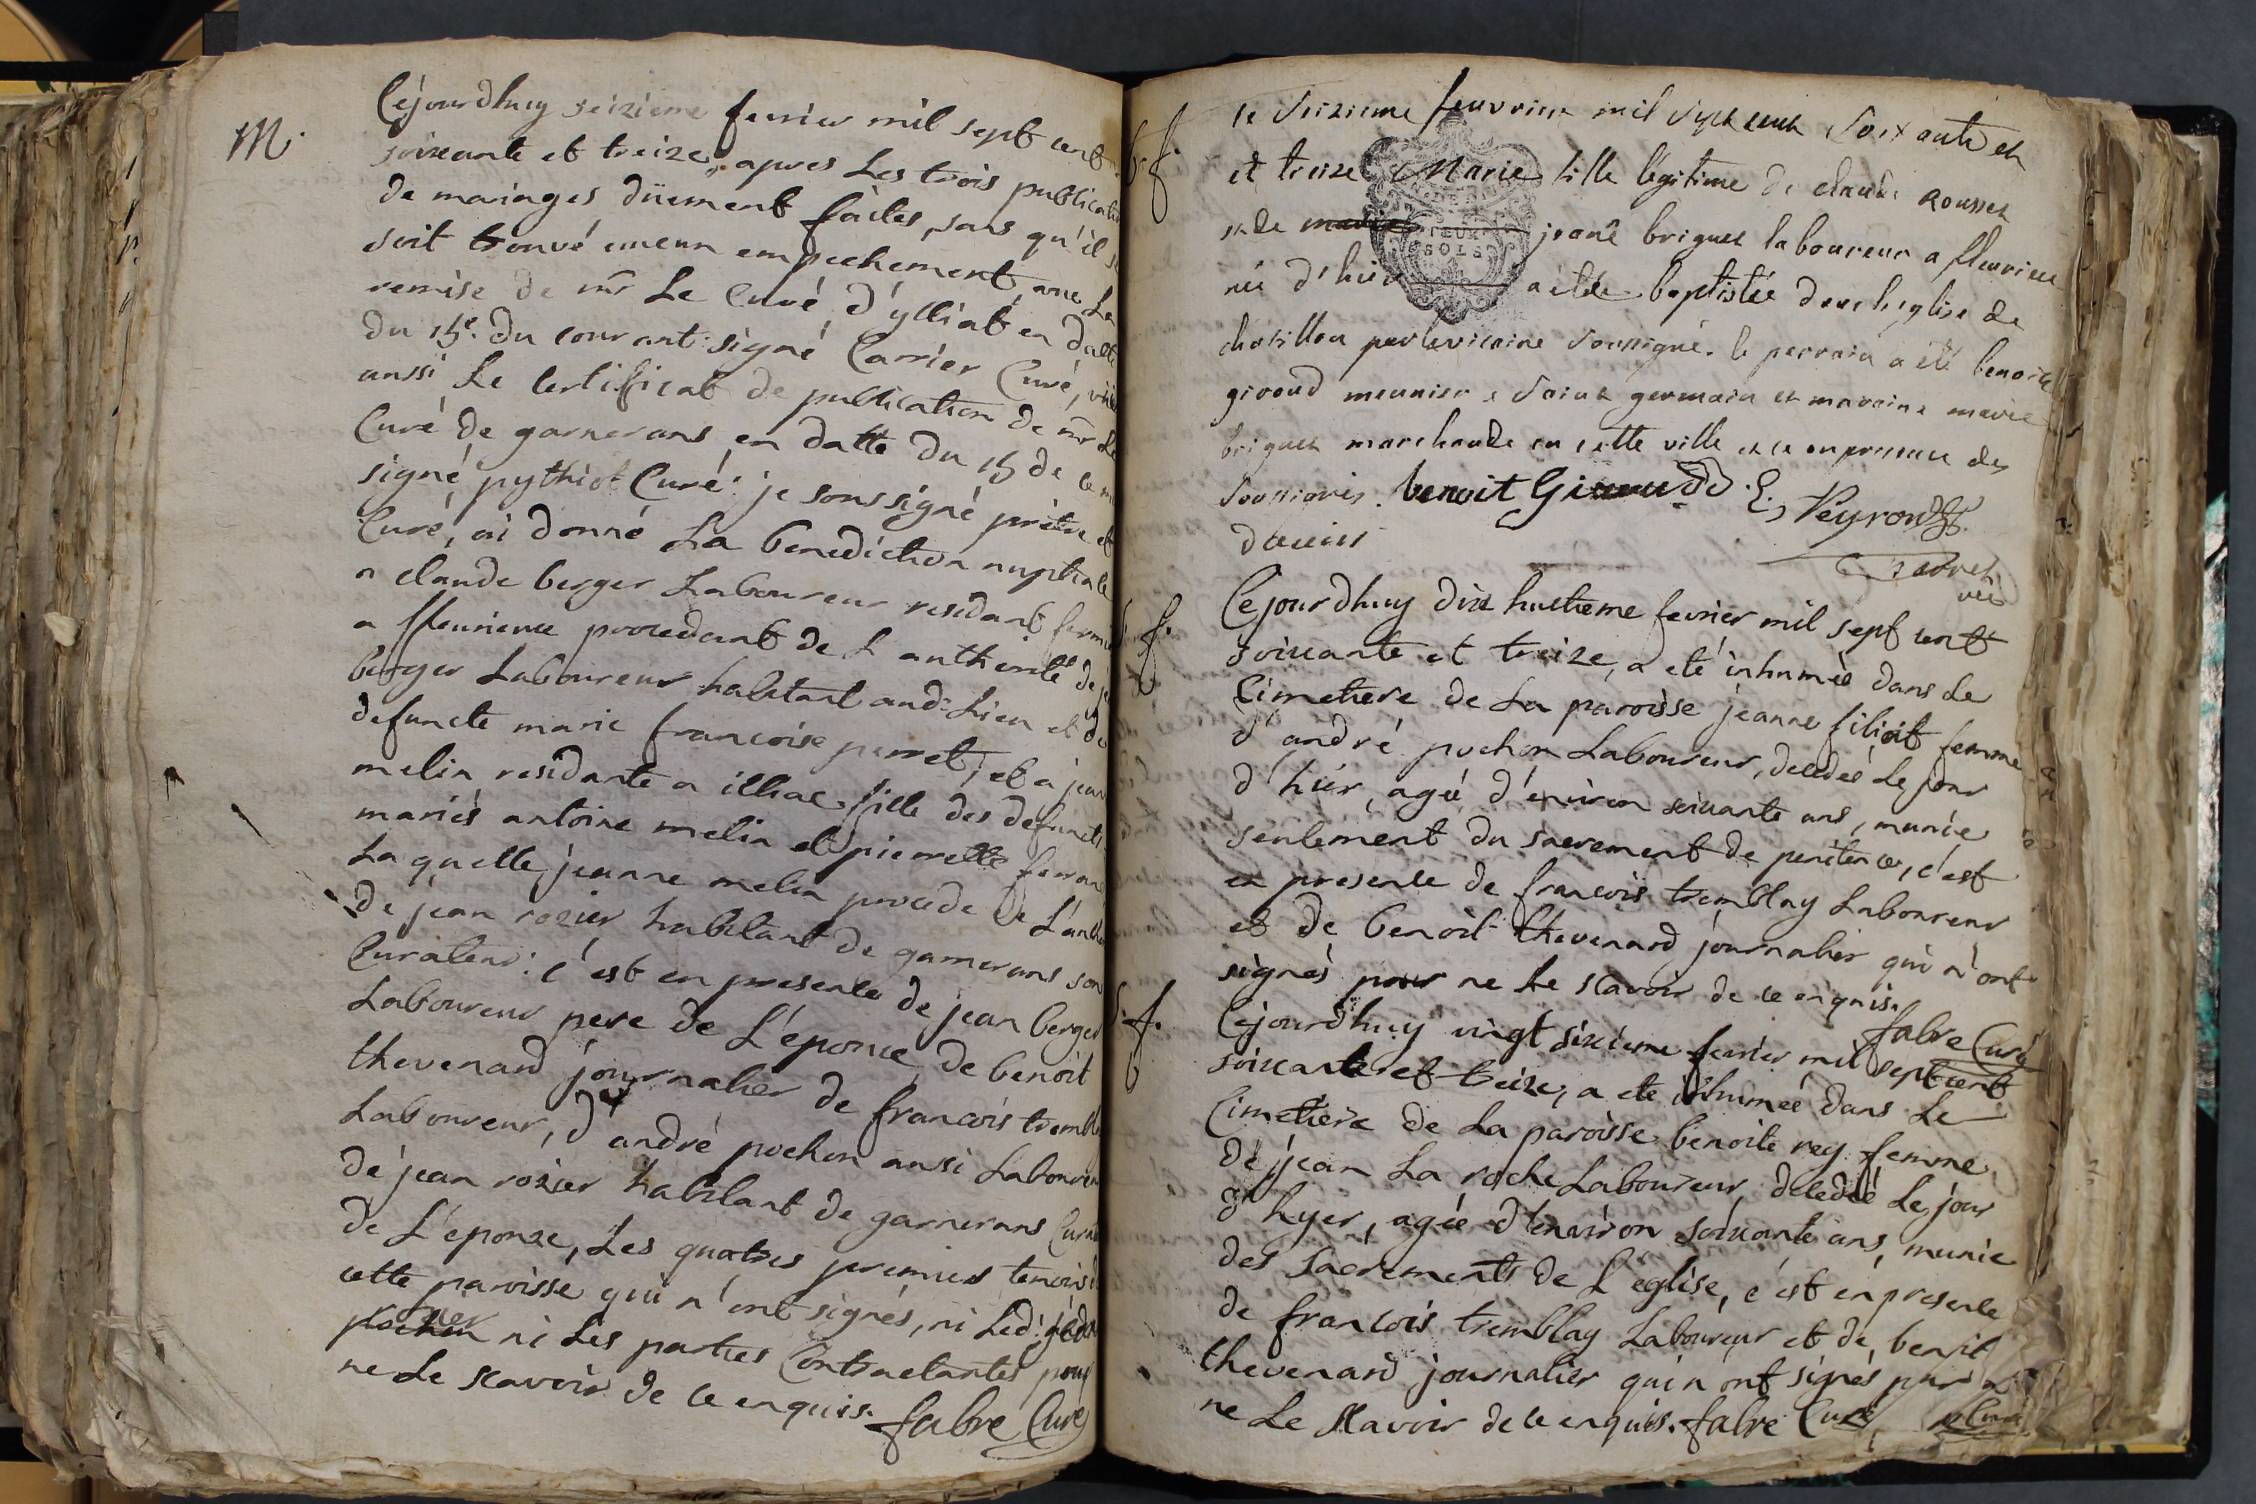 M.
Cejourdhuy seizieme fevrier mil sept cent
soixante et treize, apres Les trois publicatio
de mariages düement faites, sans qu'il se
soit trouvé aucun empechement, avec La
remise de mr Le Curé d'ylliat en datte
du 15e. du courant signé Carrier Curé, vû
aussi Le Certificat de publication de mr Le
Curé de garnerans en datte du 15 de ce m
signé pythiot Curé: je soussigné prêtre et
Curé, ai donné La benediction nuptiale
a claude berger Laboureur residant
a fleurieux procedant de L'authorité de je
berger Laboureur habitant aud: Lieu et de
defuncte marie francoise perret, et a jean
melin residante a illiac fille des defuncts
mariés antoine melin et pierrette
La quelle jeanne melin procede de L'auth
de jean rozier habitant de garnerans son
Curateur: c'est en presence de jean berger
Laboureur pere de L'epoux, de benoit
thevenard journalier de francois trembl
Laboureur, d'andré pochon aussi Laboureu
de jean rozier habitant de garnerans Cura
de L'epouse, Les quatres premiers temoins
cette paroisse qui n'ont signés, ni Led:
rozier
pochon ni Les parties Contractantes pour
ne Le scavoir de ce enquis. fabre Curé
b. f.
le seizieme feuvrier mil sept cent soixante et
et treize Marie fille légitime de claude Rousset
et de jeane briguet laboureur a fleurieu
née d'hier a etée baptisée dans leglise de
chatillon par le vicaire soussigné. le parrain a été benoit
giroud meunier a saint germain et maraine marie
briguet marchande en cette ville et ce en presence des
soussignés. benoit Giraudd. E, Peyroud
Cejourdhuy dix huitieme fevrier mil sept cent
f.
soixante et treize, a eté inhumée dans Le
Cimetiere de La paroisse jeanne filiait femme
d'andré pochon Laboureur, decedée Le jour
d'hier, agée d'environ soixante ans, munie
seulement du sacrement de penitence, c'est
en presence de francois tremblay Laboureur
et de benoit thevenard journalier qui n'ont
signés pour ne Le scavoir de ce enquis.
fabre Curé
S. f.
Cejourdhuy vingt sixieme fevrier mil sept cent
soixante et treize, a ete inhumée dans Le
Cimetiere de La paroisse benoite rey femme
de jean La roche Laboureur, decedée Le jour
d'hyer, agée d'environ soixante ans, munie
des sacrements de L'eglise, c'est en presence
de francois tremblay Laboureur et de benoit
thevenard journalier qui n'ont signés pour
ne Le scavoir de ce enquis. fabre Curé